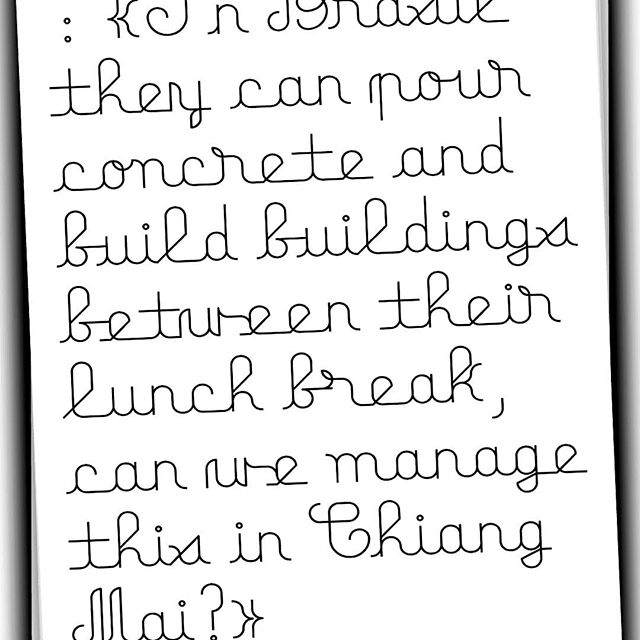 : {In Brasil
they can pour
concrete and
build buildings
between their
lunch break,
can we manage
this in Chiang
Mai?}